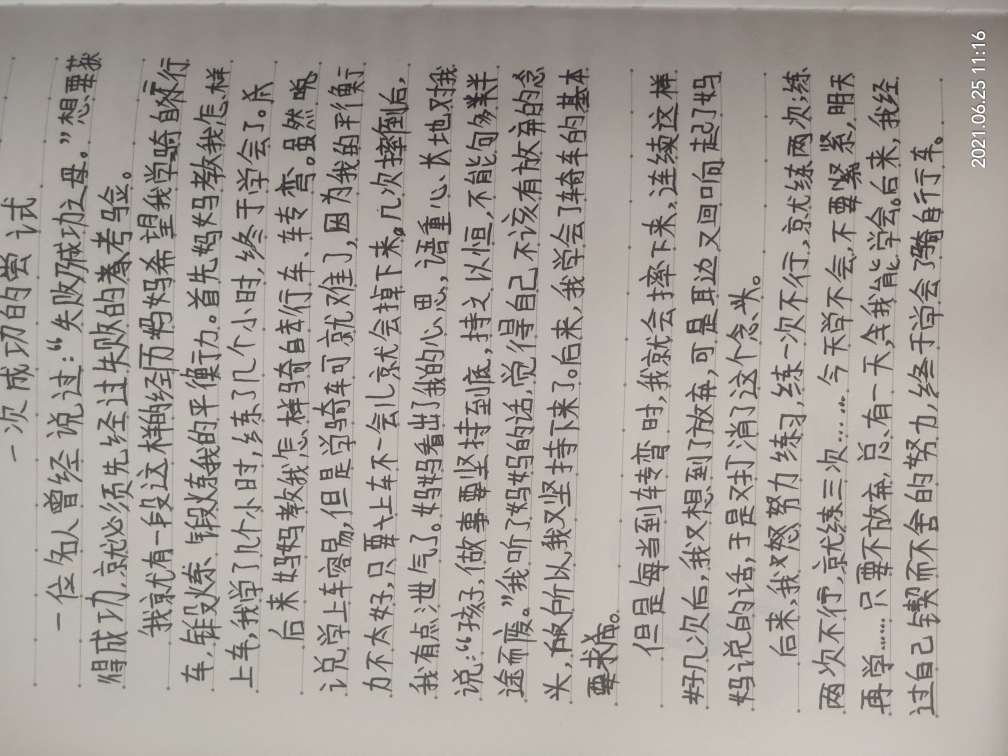 一次成功的尝试
一位名人曾经说过:“失败乃成功之母。”想要获
得成功,就必须先经过失败的考验。
我就有一段这样的经历妈妈希望我学骑自行
车,锻炼 锻炼我的平衡力。首先妈妈教我怎样
上车,我学了几个小时,练了几个小时,终于学会了。
后来妈妈教我怎样骑自行车、转弯。虽然
说学上车容易,但是学骑车可就难了,因为我的平衡
力不太好,只要上车不一会儿就会掉下来。几次摔倒后,
我有点泄气了。妈妈看出了我的心思,语重心长地对我
说:“孩子,做事要坚持到底,持之以恒,不能句半
途而废。”我听了妈妈的话,觉得自己不该有放弃的念
头,所以我又坚持下来了。后来,我学会了骑车的基本
要求。
但是每当到车转弯时,我就会摔下来,连续这样
好几次后,我又想到了放弃,可是耳边又回响起了妈
妈说的话,于是又打消了这个念头。
后来,我努力练习,练一次不行,就练两次;练
两次不行,就练三次……今天学不会,不要紧,明天
再学……只要不放弃,总有一天,我能学会。后来,我经
过自己锲而不舍的努力,终于学会了骑自行车。
2021.06.25 11:16